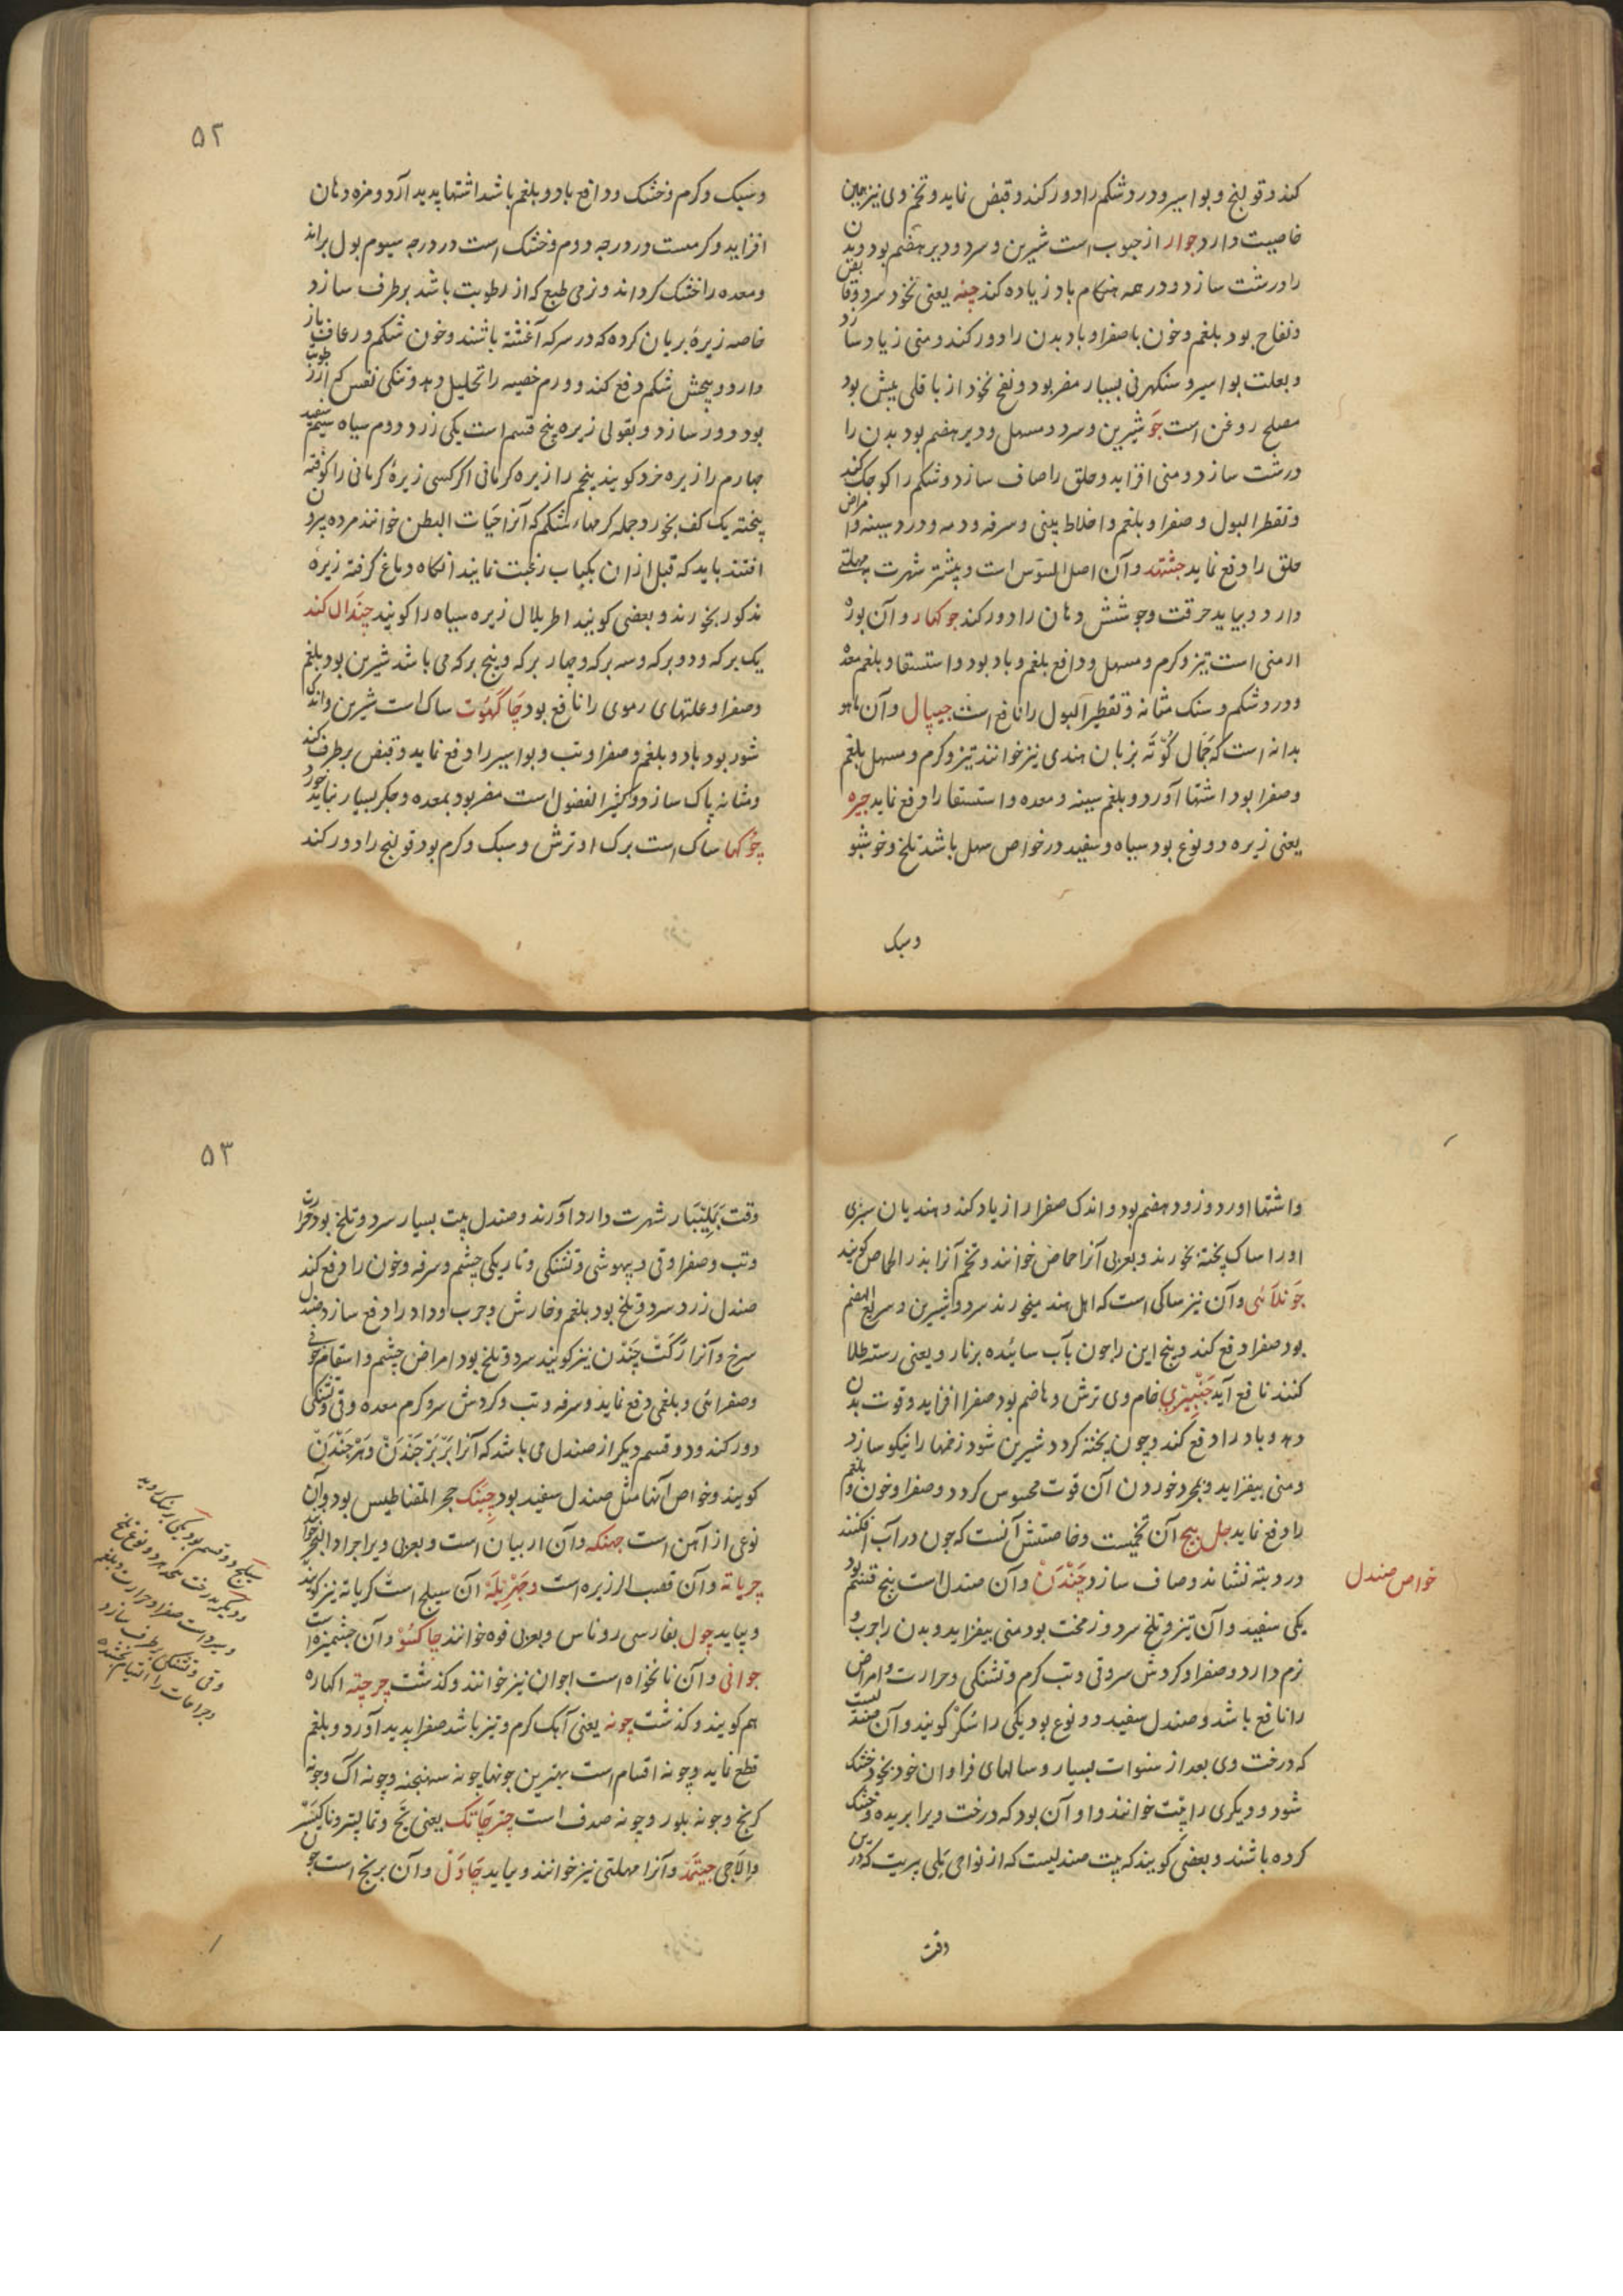 کند و قولنج و بواسیر و درد شکم را دور کند و قبض نماید و تخم وی نیز همین
خاصیت دارد جوار از حبوب است شیرین و سرد و دیر هضم بود و بدن
را درشت سازد و در همه هنکام باد زیاده کند چنه یعنی نخود سرد و قابض
و نفاخ بود بلغم و خون با صفرا و باد بدن را دور کند و منی زیاد سازد
و بعلت بواسیر و سنکهرنی بسیار مضر بود و نفخ نخود از باقلی بیش بود
مصلح روغن است جَو شیرین و سرد و مسهل و دیر هضم بود بدن را
درشت سازد و منی افزاید و حلق را صاف سازد و شکم را کوچک کند
و تقطر البول و صفرا و بلغم و اخلاط بینی و سرفه و دمه و درد سینه و امراض
حلق را دفع نماید جیتهمد و آن اصل السوس است و بیشتر شهرت بمهلتی
دارد و بیاید حرقت و جوشش دهان را دور کند جوکهار و آن بوره
ارمنی است تیز و کرم و مسهل و دافع بلغم و باد بود و استسقا و بلغم معده
و درد شکم و سنک مثانه و تقطیر البول را نافع است جیپال و آن ماهو
بدانه است که جمال کوته بزبان هندی نیز خوانند تیز و کرم و مسهل بلغم
و صفرا بود اشتها آورد و بلغم سینه و معده و استسقا را دفع نماید جیره
یعنی زیره دو نوع بود سیاه و سفید در خواص سهل باشد تلخ و خوشبو
وسبک
۵۲
وسبک و کرم و خشک و دافع باد و بلغم باشد اشتها پدید آرد و مزه دهان
افزاید و کرمست در درجه دوم و خشک است در درجه سیوم بول براند
و معده را خشک کرداند و نرمی طبع که از رطوبت باشد برطرف سازد
خاصه زیرهٔ بریان کرده که در سرکه آغشته باشند و خون شکم و رعاف باز
دارد و پیچش شکم دفع کند و ورم خصیه را تحلیل دهد و تنکی نفس که از رطوبت
بود دور سازد و بقولی زیره پنج قسم است یکی زرد دوم سیاه سیم سفید
چهارم را زیره خرد کویند پنجم را زیره کرمانی اکر کسی زیرهٔ کرمانی را کوفته
پخته یک کف بخورد جمله کرمهاء شکم که آنرا حیات البطن خوانند مرده بیرون
افتند باید که قبل ازان بکباب رغبت نمایند انکاه دماغ کرفته زیرهٔ
مذکور بخورند و بعضی کویند اطریلال زیره سیاه را کویند چندال کند
یک برکه و دو برکه و سه برکه و چهار برکه و پنج برکه می باشد شیرین بود بلغم
و صفرا و علتهای دموی را نافع بود چاکهوت ساک است شیرین و اندک
شور بود باد و بلغم و صفرا و تب و بواسیر را دفع نماید و قبض برطرف کند
و مثانه پاک سازد و کثیر الفضول است مضر بود بمعده و جکر بسیار نباید خورد
چوکها ساک است برک او ترش و سبک و کرم بود قولنج را دور کند
و اشتها اورد و زود هضم بود و اندک صفرا را زیاد کند و هندیان سبزی
اورا ساک پخته بخورند و بعربی آنرا حماض خوانند و تخم آنرا بذر الحماض کویند
چولائی و آن نیز ساکی است که اهل هند میخورند سرد و شیرین و سریع الهضم
بود صفرا دفع کند و بیخ این را چون بآب سائیده بر نارو یعنی رشته طلا
کنند نافع آید جنبیری خام وی ترش و هاضم بود صفرا افزاید و قوت بدن
دهد و باد را دفع کند و چون پخته کردد شیرین شود زخمها را نیکو سازد
و منی بیفزاید و بمجرد خوردن آن قوت محسوس کردد و صفرا و خون و بلغم
را دفع نماید جل بیج آن تخمیست و خاصیتش آنست که چون در آب افکنند
درد بته نشاند و صاف سازد چندن و آن صندل است پنج قسم بود
یکی سفید و آن تیز و تلخ سرد و زمخت بود منی بیفزاید و بدن را چرب و
نرم دارد و صفرا و کردش سر و قی و تب کرم و تشنکی و حرارت و امراض
را نافع باشد و صندل سفید دو نوع بود یکی را سکر کویند و آن صندلیست
که درخت وی بعد از سنوات بسیار و سالهای فراوان خود بخود خشک
شود و دیکری را پت خوانند و او آن بود که درخت ویرا بریده و خشک
کرده باشند و بعضی کویند که پت صندلیست که از نواحی بلی پربت که درین
وقت
خواص صندل
۵۳
وقت بملیبار شهرت دارد آورند و صندل پت بسیار سرد و تلخ بود حرارت
و تب و صفرا و قی و بیهوشی و تشنکی و تاریکی چشم و سرفه و خون را دفع کند
صندل زرد سرد و تلخ بود بلغم و خارش و جرب و داد را دفع سازد صندل
سرخ و آنرا رکت چندن نیز کویند سرد و تلخ بود امراض چشم و اسقام خونی
و صفرائی و بلغمی دفع نماید و سرفه و تب و کردش سر و کرم معده و قی و تشنکی
دور کند و دو قسم دیکر از صندل می باشد که آنرا بربر چندن و هر چندن
کویند و خواص آنها مثل صندل سفید بود چنبک حجر المقناطیس بود و آن
نوعی از آهن است جهنکه و آن اربیان است و بعربی ویرا جراد البحر خوانند
چریاته و آن قصب الزریره است و جریله آن سیلج است کریاته نیز کویند
و بیاید چول بفارسی روناس و بعربی فوه خوانند چاکسو و آن چشمیزه است
جوانی و آن نانخواه است اجوان نیز خوانند و کذشت چرچته اکهاره
هم کویند و کذشت چونه یعنی آهک کرم و تیز باشد صفرا پدید آورد و بلغم
قطع نماید و چونه اقسام است بهترین چونها چونه سهنجنه و چونه اک و چونه
کرنج و چونه بلور و چونه صدف است چترجاتک یعنی تج و تمالپتر و ناکیسر
و الاچی جیتمد و آنرا مهلتی نیز خوانند و بیاید چاول و آن برنج است چون
دو قسم بود یکی
دیکر بدرخت که هر دو نوع تلخ
و سرد است صفرا و حرارت و بلغم
و قی و تشنکی برطرف سازد
و جراحات را التیام بخشد